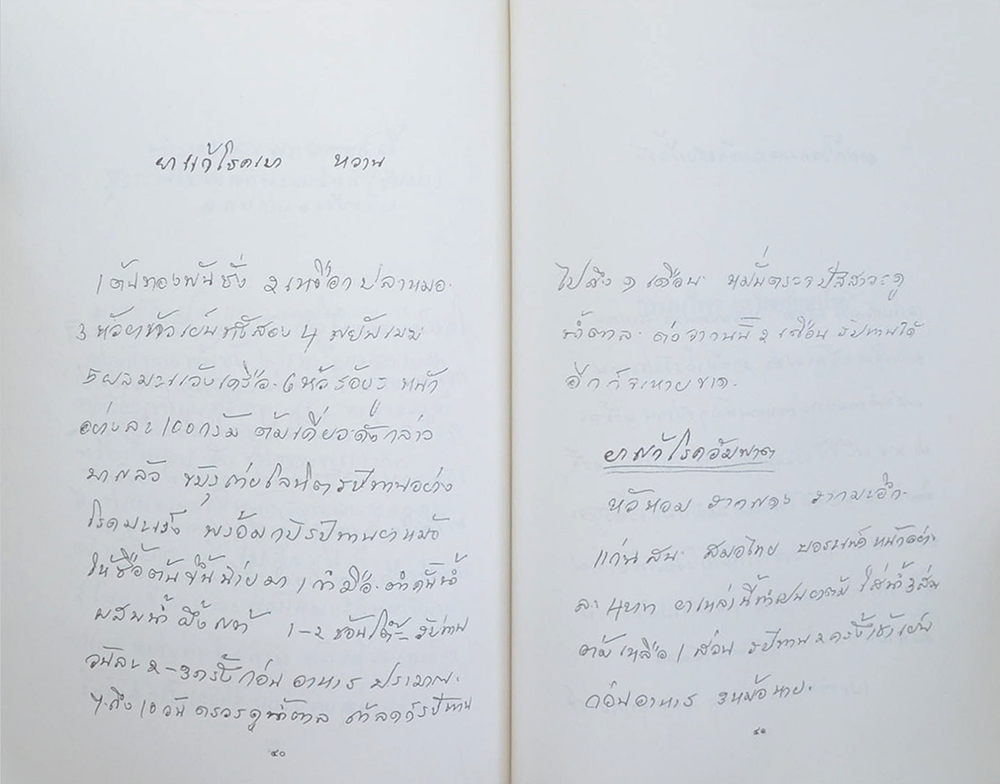 ยาแก้โรคเบา หวาน
1 ต้นทองพันชั่ง 2 เหงือกปลาหมอ
3 หัวยาข้าวเย็นทั้งสอง 4 พยับเมฆ
5 ผลมะแว้งเครือ 6 หัวร้อยรู หนัก
อย่างละ 100 กรัม ต้มเคี่ยว ดังกล่าว
มาแล้ว รับทานอย่าง
โรคมะเร็ง รับทานยาหม้อ
ให้ซื้อต้นขึ้นฉ่ายมา 1 กำมือ ตำคั้นน้ำ
ผสมน้ำผึ้งแท้ 1-2 ช้อนโต๊ะ รับทาน
วันละ 2-3 ครั้งก่อนอาหาร ประมาณ
7 ถึง 10 วัน ควรดูน้ำตาล ถ้าลดก็รับทาน
๔๐
ไปถึง 1 เดือน หมั่นตรวจปัสสาวะดู
น้ำตาล ต่อจากนี้ 2 เดือน รับทานได้
อีกก็จะหายขาด
ยาแก้โรคอัมพาต
หัวหอม รากแดง รากมะเฟือง
แก่นสน สมอไทย บอระเพ็ด หนักอย่าง
ละ 4 บาท ยาเหล่านี้ทำเป็นยาต้ม ใส่น้ำ 3 ส่วน
ต้มเหลือ 1 ส่วน รับทาน 2 ครั้ง เช้าเย็น
ก่อนอาหาร 3 หม้อหาย
๔๑